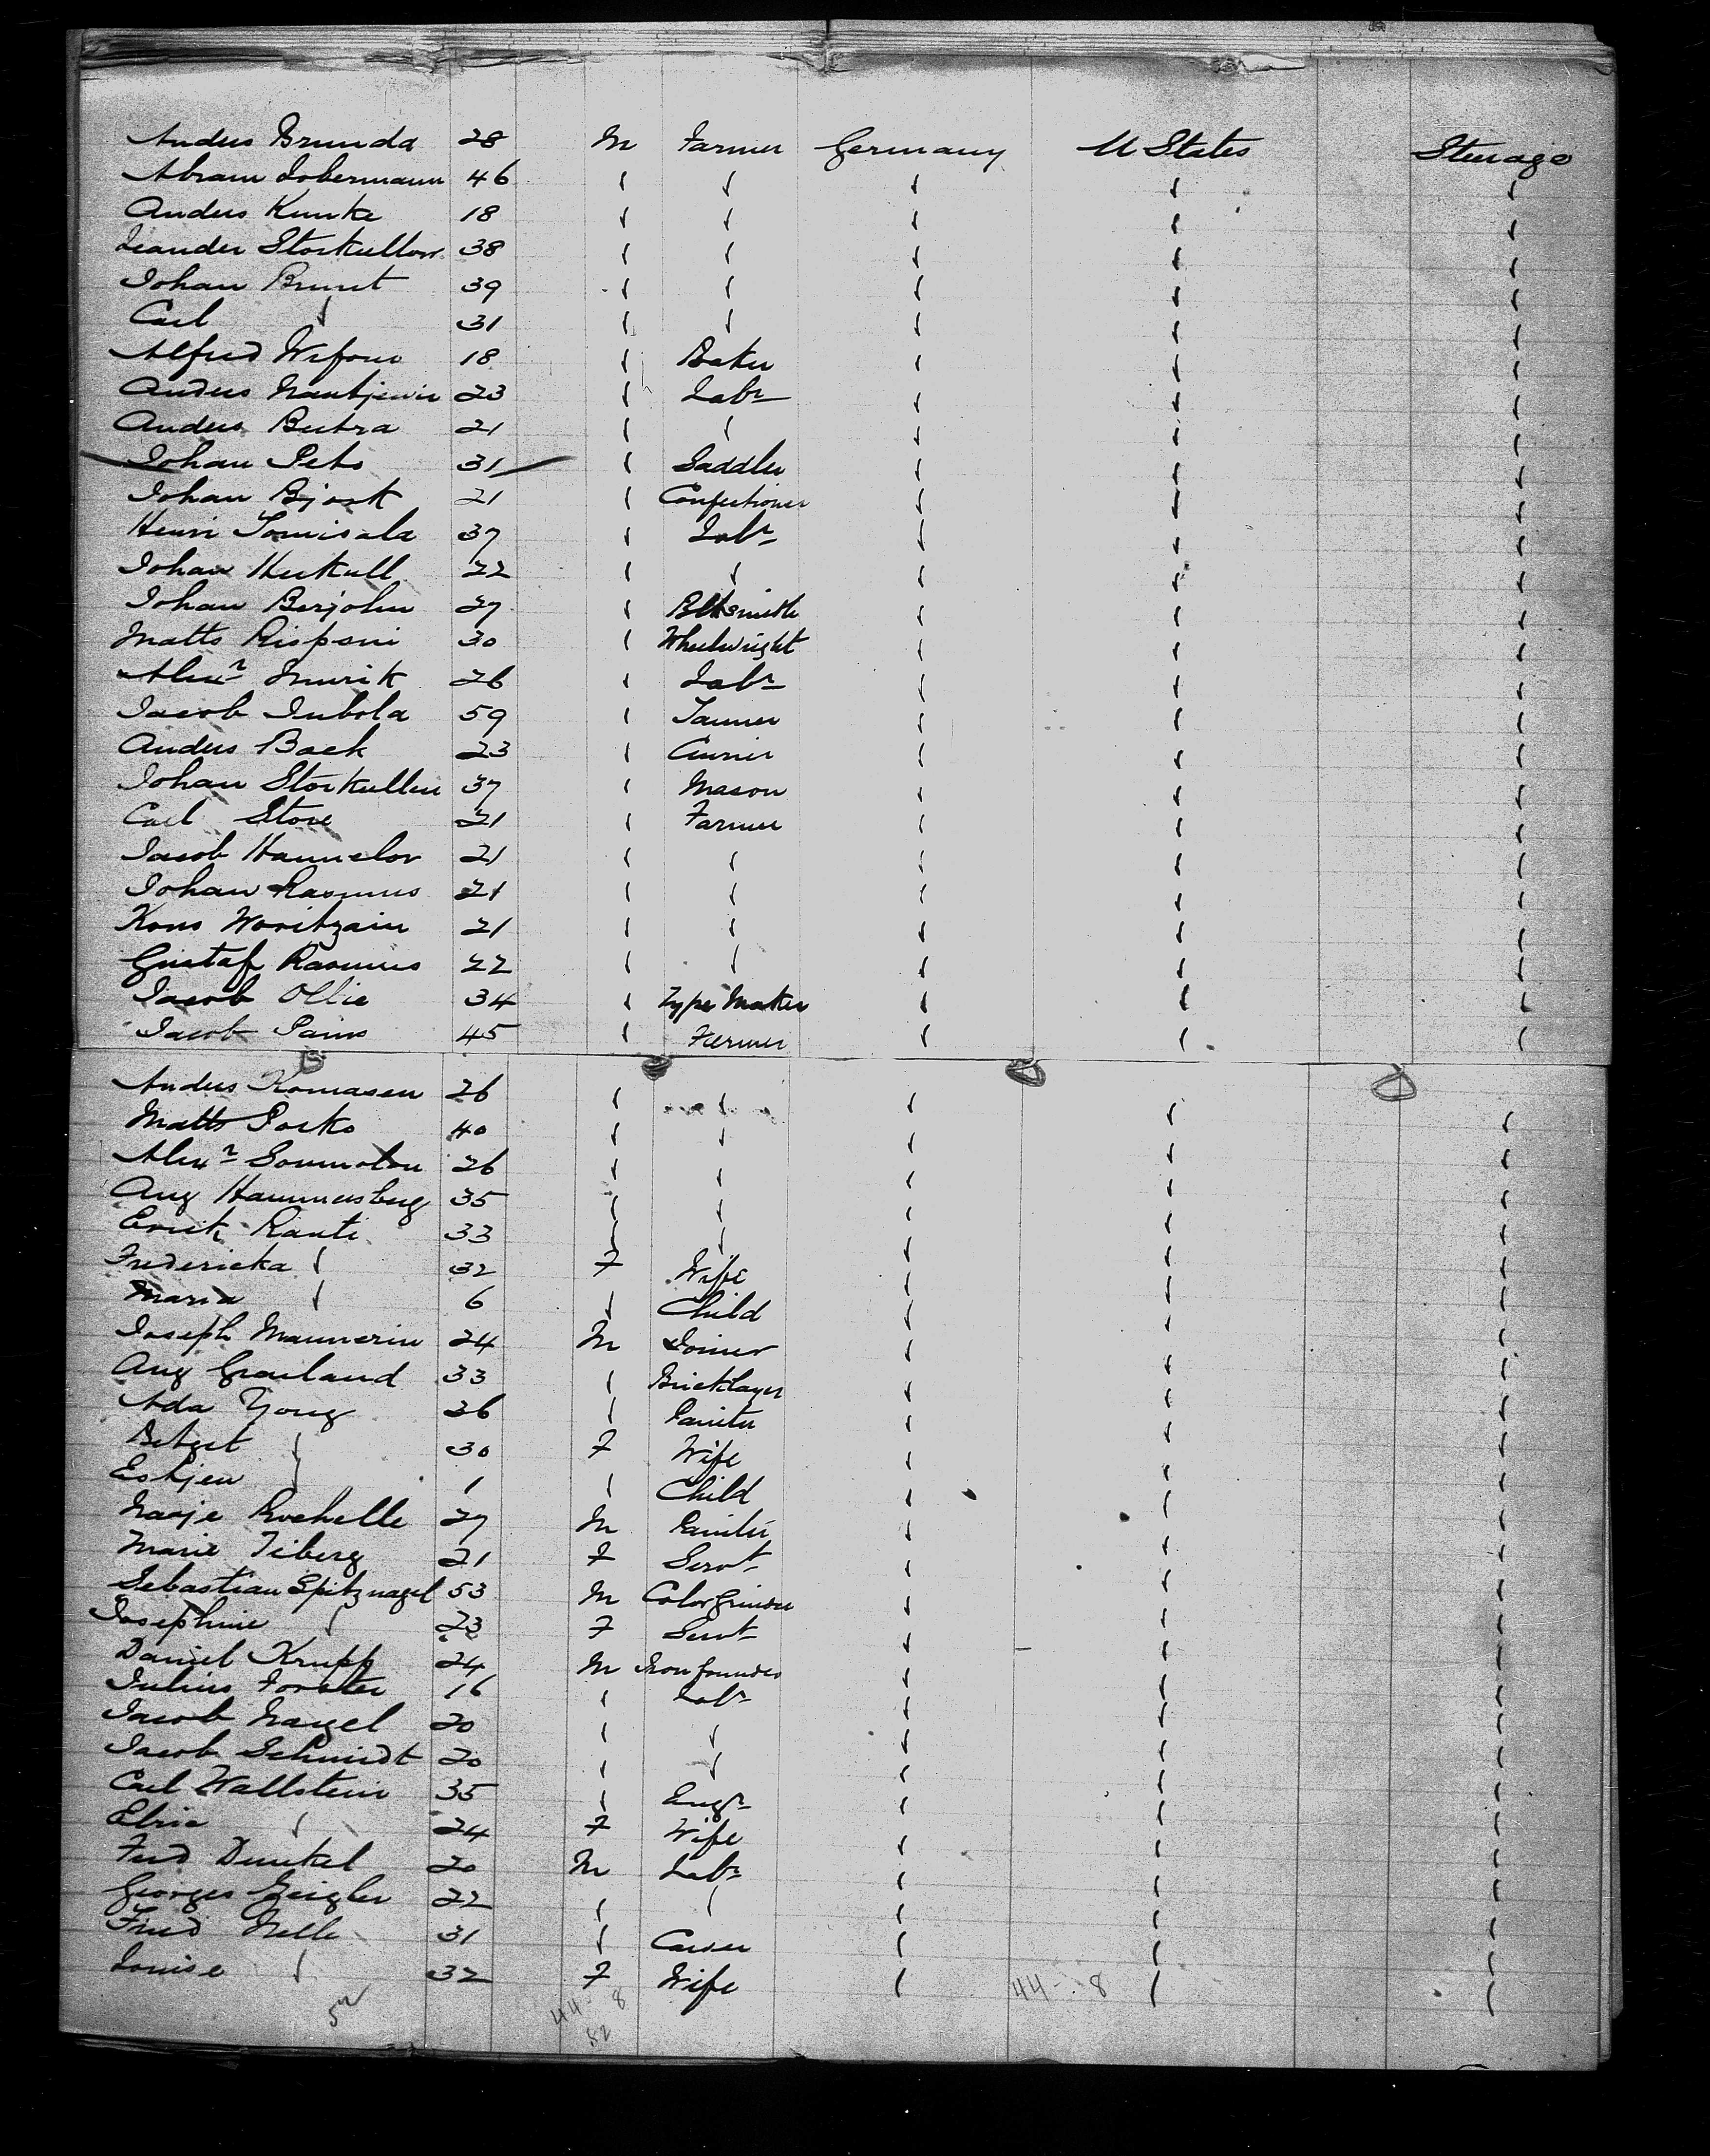 Anders Brunda 28 M Farmer Germany U States Steerage
Abram Dobermann 46 " " " " "
Anders Kunke 18 " " " " "
Leander Storkullom 38 " " " " "
Johan Brunt 39 " " " " "
Carl " 31 " " " " "
Alfred 18 " Baker " " "
Anders 23 " Labr " " "
Anders Butra 21 " " " " "
Johan Pets 31 " Saddler " " "
Johan Bjork 21 " Confectioner " " "
Henri Tomisala 37 " Labr " " "
Johan Herkull 22 " " " " "
Johan Berjohn 27 " Blksmith " " "
Matts Rispsni 30 " Wheelwright " " "
Alexr 26 " Labr " " "
Jacob Inbola 59 " Tanner " " "
Anders Back 23 " Currier " " "
Johan Storkullen 37 " Mason " " "
Carl Store 21 " Farmer " " "
Jacob Hannelor 21 " " " " "
Johan Rasmus 21 " " " " "
Kons Woritzain 21 " " " " "
Gustaf Rasmus 22 " " " " "
Jacob Ollie 34 " Type Maker " " "
Jacob 45 " Farmer " " "
Anders Komasen 26 " " " " "
Matts Porko 40 " " " " "
Alexr 26 " " " " "
Aug Hammersberg 35 " " " " "
Erick Ranti 33 " " " " "
Fredericka " 32 F Wife " " "
Maria " 6 " Child " " "
Joseph Mannerin 24 M Joiner " " "
Aug Granland 33 " Bricklayer " " "
Ada Yong 36 " Painter " " "
Betzet " 30 F Wife " " "
Eskjen " 1 " Child " " "
Naaje Rochelle 27 M Painter " " "
Marie Tiberg 21 F Servt " " "
Sebastian Spitznagel 53 M Color Grinder " " "
Josephine " 23 F Servt " " "
Daniel Krupp 24 M Iron founder " " "
Julius Forster 16 " Labr " " "
Jacob Nagel 20 " " " " "
Jacob Schmidt 20 " " " " "
Carl Wallstein 35 " Engr " " "
Elrie " 24 F Wife " " "
Ferd Dunkel 20 M Labr " " "
Georges Geigler 22 " " " " "
Fred Nelle 31 " Carver " " "
Louise " 32 F Wife " " "
52 44 8 44 - 8
52